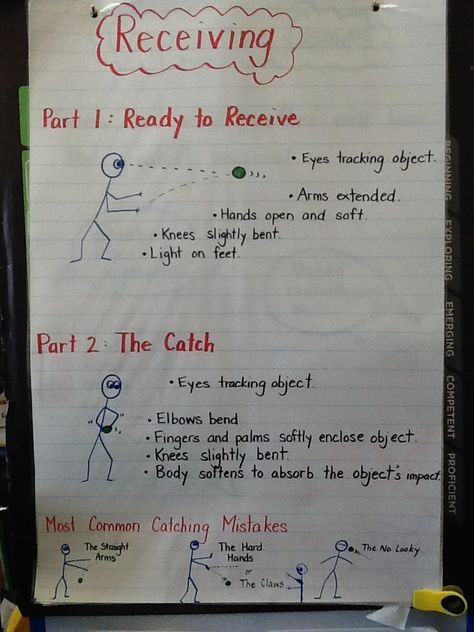 Receiving
Part 1: Ready to Receive
• Eyes tracking object.
• Arms extended.
• Hands open and soft.
• Knees slightly bent.
• Light on feet.
Part 2: The Catch
• Eyes tracking object.
• Elbows bend
• Fingers and palms softly enclose object.
• Knees slightly bent.
• Body softens to absorb the object's impact.
Most Common Catching Mistakes
The Straight Arms
The Hard Hands
or
The Claws
The No Looky
BEGINNING
EXPLORING
EMERGING
COMPETENT
PROFICIENT